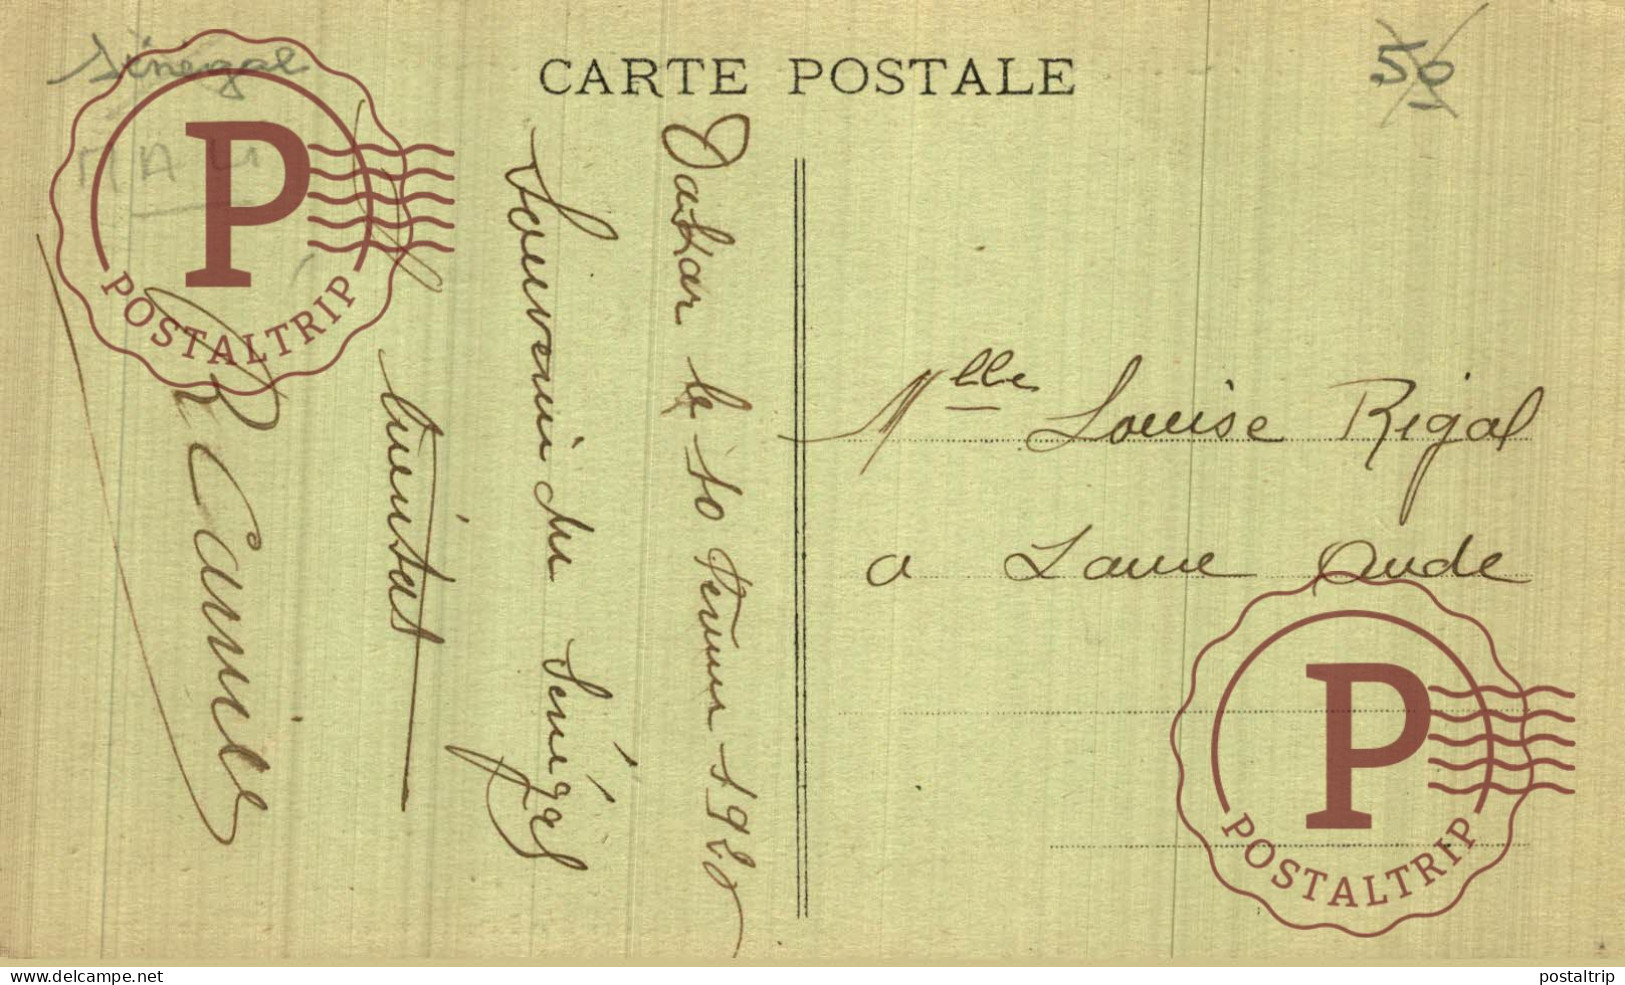 Sénégal
CARTE POSTALE
50
MALI
Dakar le 10 Février 192
Souvenir du Sénégal
R Camier
Mlle Louise Rigal
a Laure Aude
P
POSTALTRIP
P
POSTALTRIP
www.delcampe.net
postaltrip